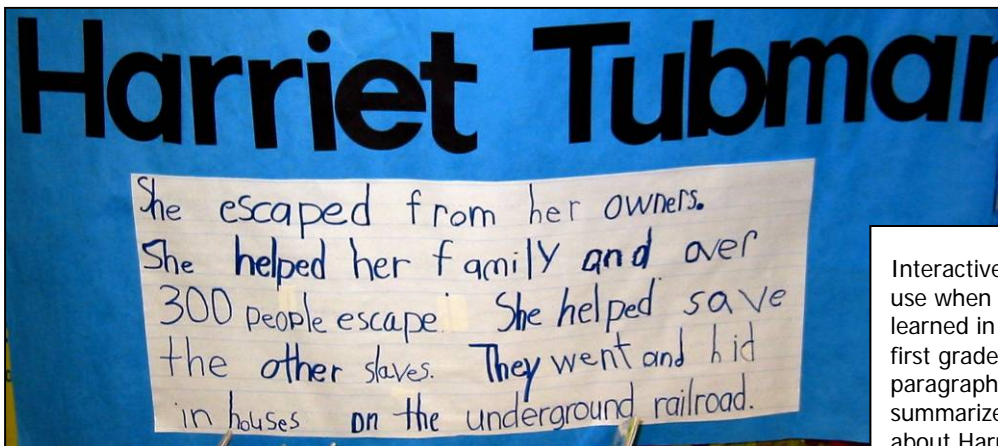 Harriet Tubman
She escaped from her owners.
She helped her family and over
300 people escape. She helped save
the other slaves. They went and hid
in houses on the underground railroad.
Interactive
use when
learned in
first grade
paragraph
summarize
about Harr